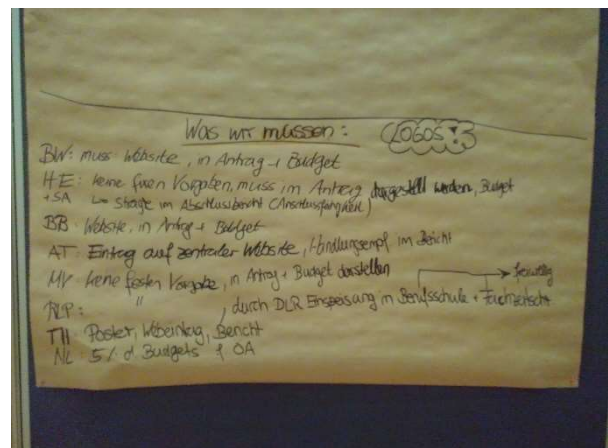 Was wir müssen: LOGOS!
BW: muss Website, in Antrag + Budget
HE: keine fixen Vorgaben, muss im Antrag dargestellt werden, Budget
+SA ↳ im Abschlussbericht (Anschlussfähigkeit)
BB: Website, in Antrag + Budget
AT: Eintrag auf zentraler Website, Handlungsempf. im Bericht
MV: keine festen Vorgabe, in Antrag + Budget darstellen
→ freiwillig
RLP: " , durch DLR Einspeisung in Berufsschule +
TH: Poster, Webeintrag, Bericht
NL: 5% d. Budgets f. ÖA